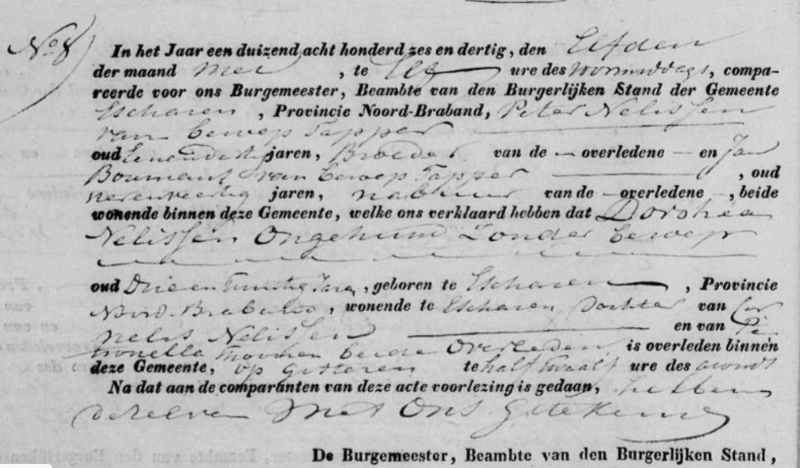 No 8
In het Jaar een duizend acht honderd zes en dertig, den Elfden
der maand Mei , te Elf ure des voormiddags, compa-
reerde voor ons Burgemeester, Beambte van den Burgerlijken Stand der Gemeente
Escharen , Provincie Noord-Braband, Peter Nelissen
van beroep Tapper
oud Eenendertig jaren, Broeder van de — overledene — en Jan
Boumans van beroep Tapper , oud
jaren, nabuur van de — overledene —, beide
wonende binnen deze Gemeente, welke ons verklaard hebben dat Dorothea
Nelissen Ongehuwd Zonder beroep
oud Drie en Twintig Jaren, geboren te Escharen , Provincie
Noord-Braband, wonende te Escharen, Dochter van Cor
nelis Nelissen en van Pe
tronella beide Overleden, is overleden binnen
deze Gemeente, op gisteren te half twaalf ure des avonds
Na dat aan de comparanten van deze acte voorlezing is gedaan, hebben
dezelven Met Ons Geteekend
De Burgemeester, Beambte van den Burgerlijken Stand,